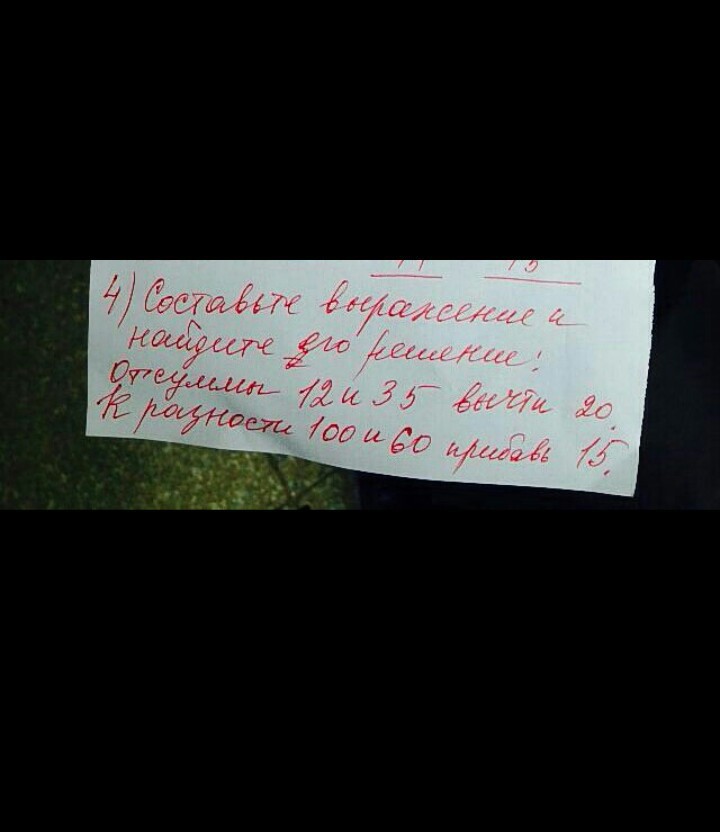 4) Составьте выражение и
найдите его решение:
От суммы 12 и 35 вычти 20.
К разности 100 и 60 прибавь 15.